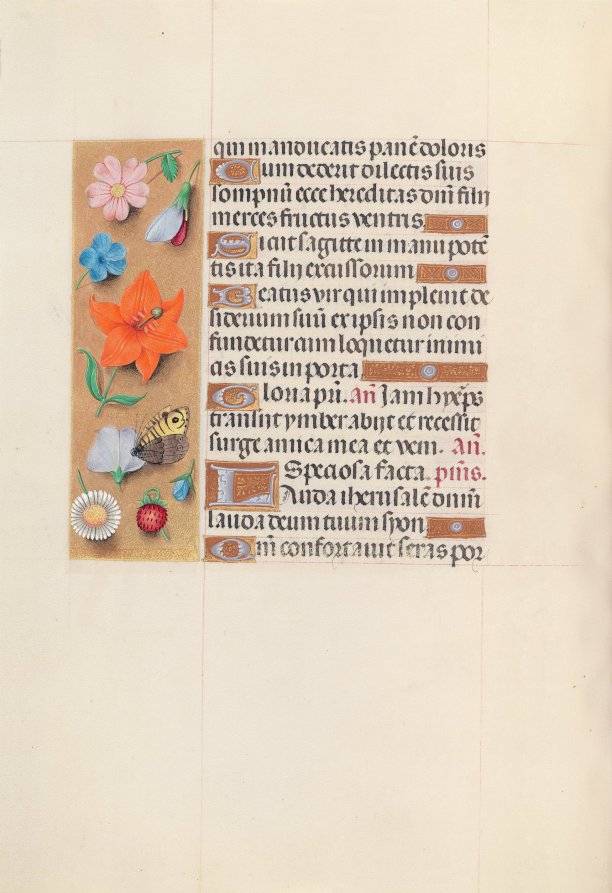 qui manducatis panē doloris
Cum dederit dilectis suis
sompnū ecce hereditas dñi filij
merces fructus ventris
Sicut sagitte in manu potē
tis ita filij excussorum
Beatus vir qui impleuit de
siderium suū ex ipsis non con
fundetur cum loquetur inimi
cis suis in porta
Gloria pri. añ Jam hyēps
transiit ymber abijt et recessit
surge amica mea et veni. Añ.
Speciosa facta. pſmſ.
Lauda iherusalē dominū
lauda deum tuum syon
Qm̄ confortauit seras por